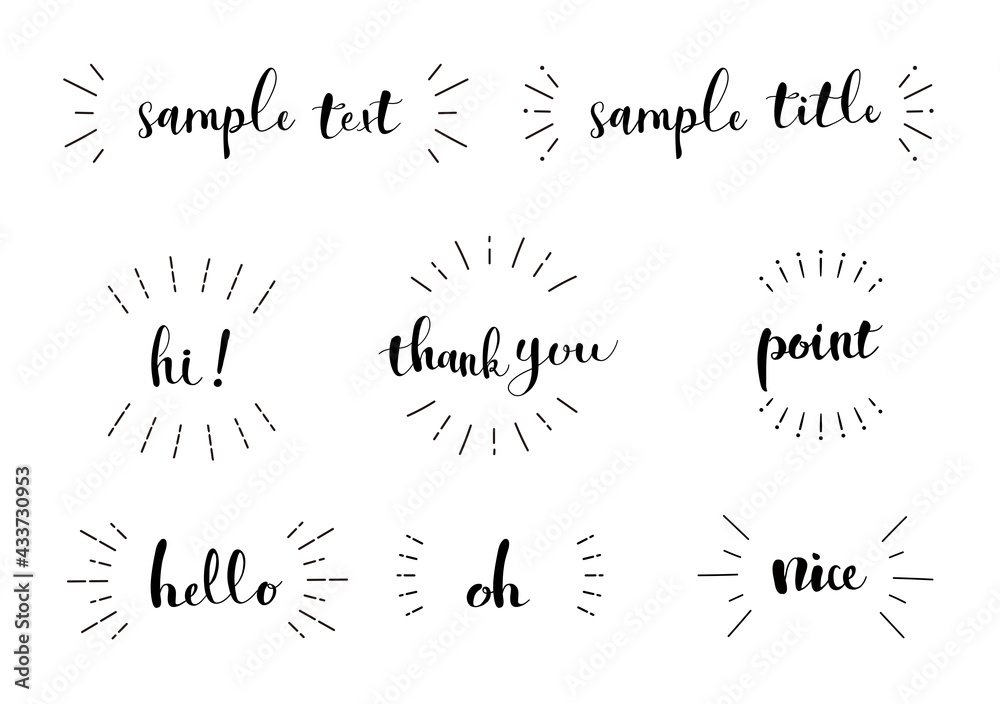 sample text
sample title
hi!
thank you
point
hello
oh
nice
Adobe Stock | #433730953
Adobe Stock